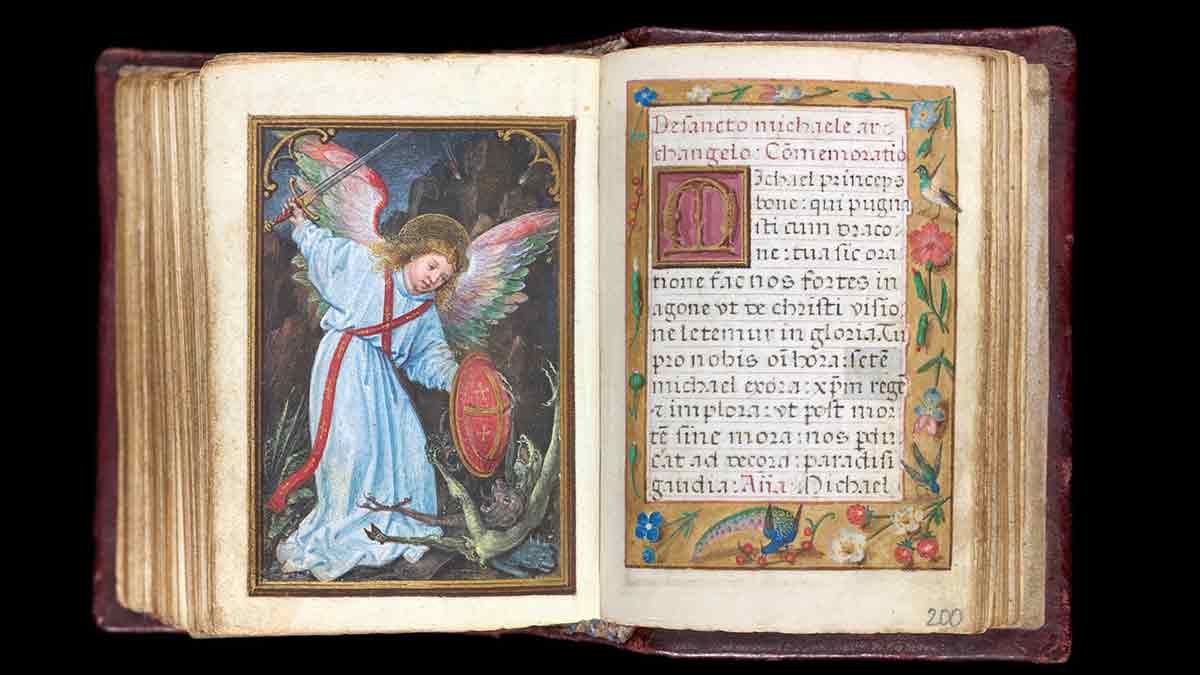 De sancto michaele ar
changelo: Cōmemoratio
Michael princeps
bone: qui pugna
sti cum draco
ne: tua sic ora
tione fac nos fortes in
agone vt de christi visio
ne letemur in gloria. Tu
pro nobis oī hora: sctē
michael exora: xp̄m regē
⁊ implora: vt post mor
tē sine mora: nos
ad decora: paradisi
gaudia: Añа Michael
200